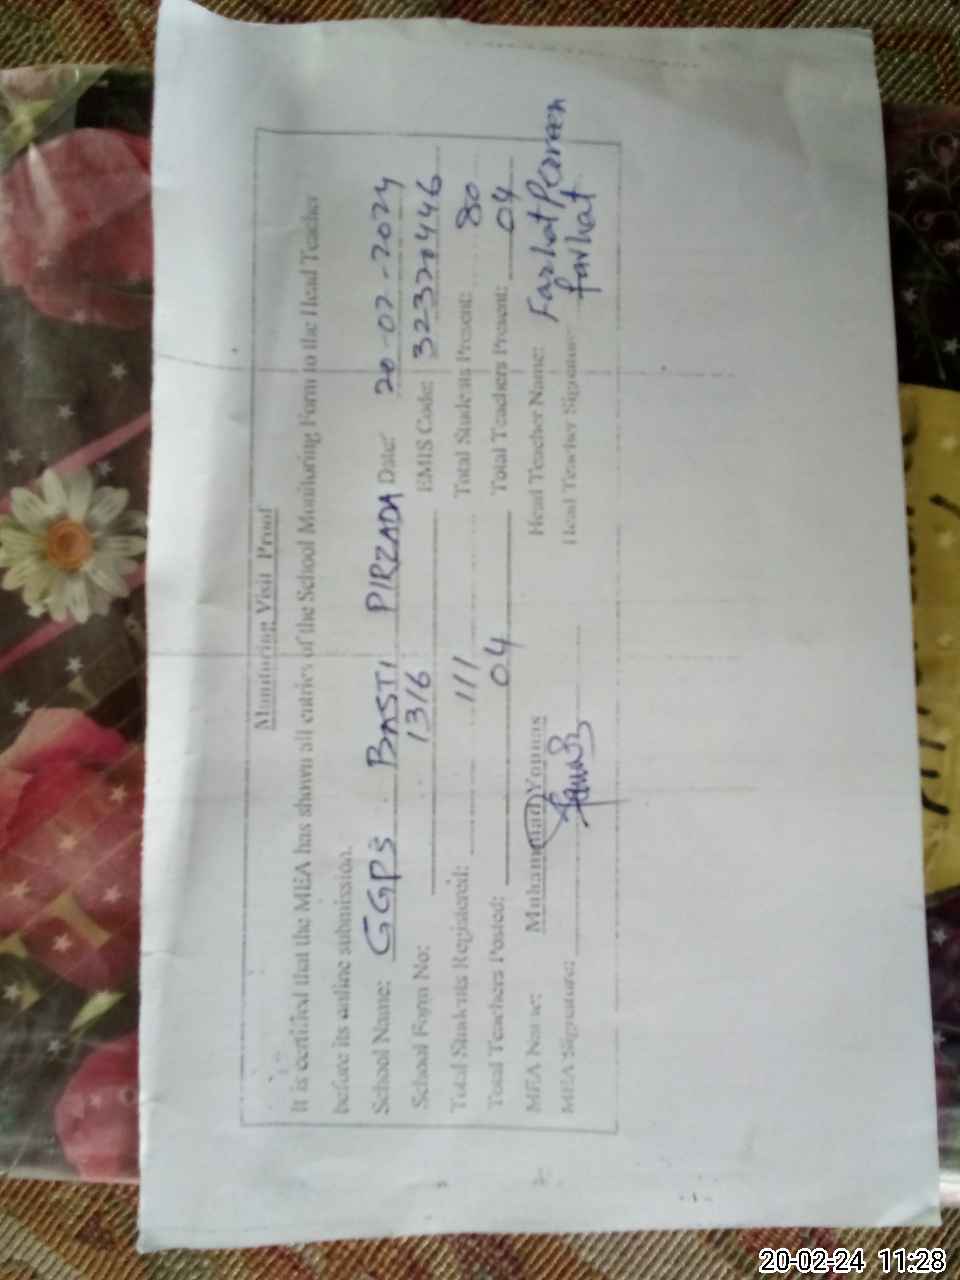 Monitoring Visit Proof
It is certified that the MEA has shown all entries of the School Monitoring Form to the Head Teacher
before its online submission.
School Name: GGPS BASTI PIRZADA Date: 20-02-2024
School Form No: 1316 EMIS Code:
Total Students Registered: 111 Total Students Present: 80
Total Teachers Posted: 04 Total Teachers Present: 04
MEA Name: Muhammad Younas Head Teacher Name: Farhat Parveen
MEA Signature: Younas Head Teacher Signature farhat
20-02-24 11:28